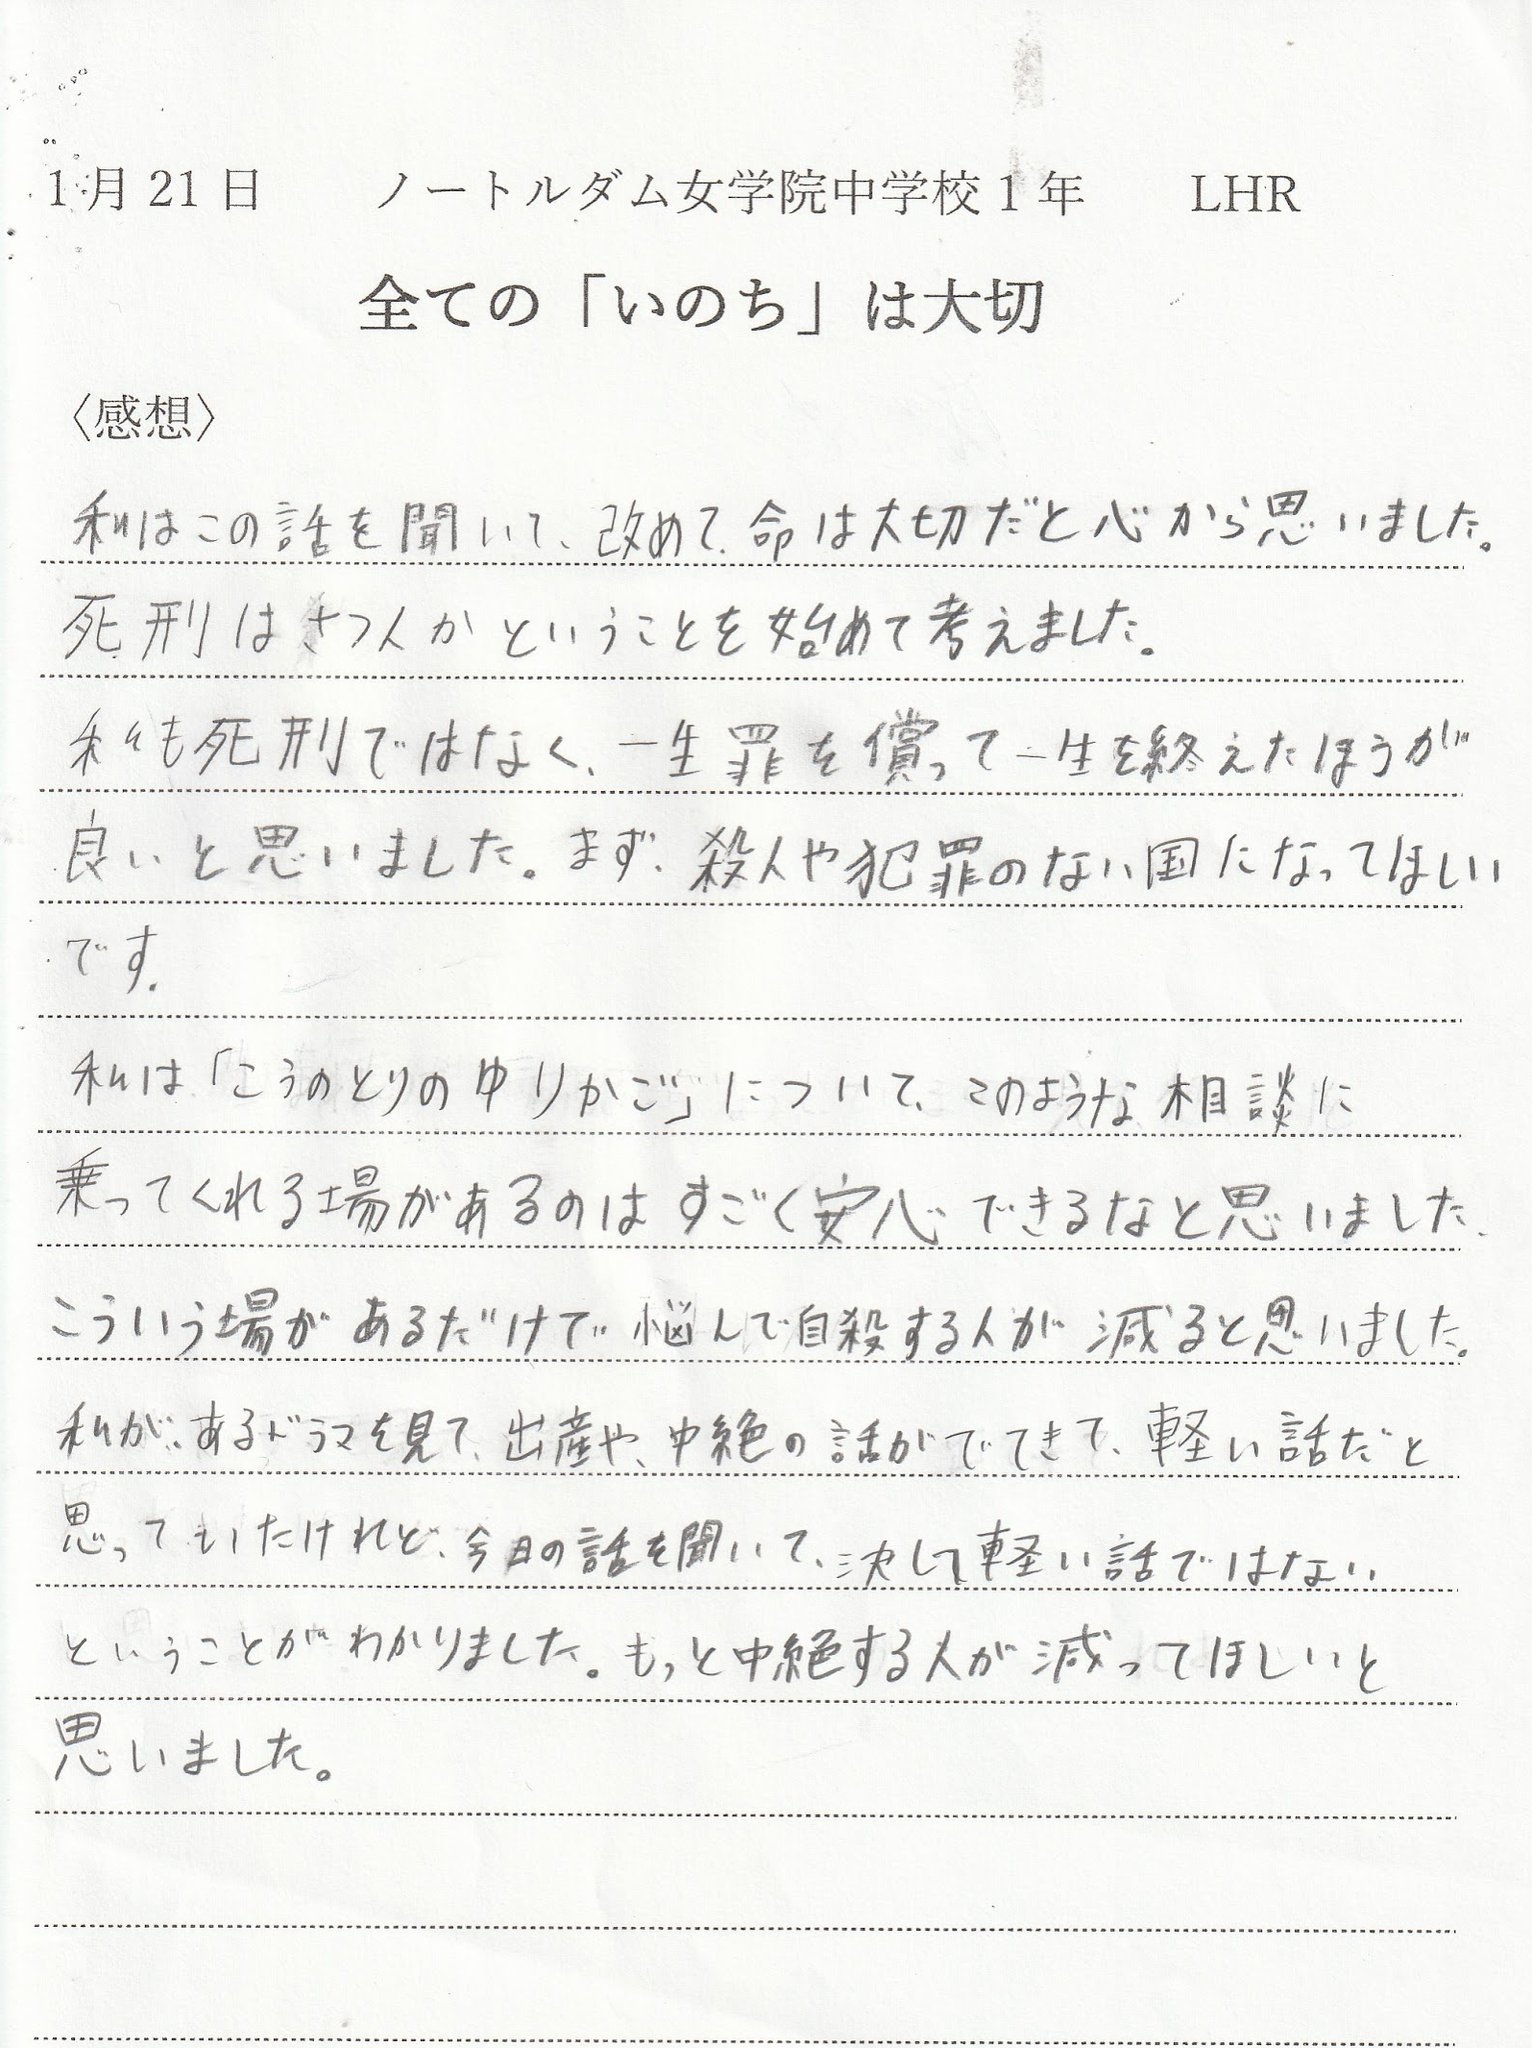 1月21日　ノートルダム女学院中学校1年　LHR
全ての「いのち」は大切
〈感想〉
私はこの話を聞いて、改めて、命は大切だと心から思いました。
死刑はさつ人かということを始めて考えました。
私も死刑ではなく、一生罪を償って一生を終えたほうが
良いと思いました。まず、殺人や犯罪のない国になってほしい
です。
私は「こうのとりのゆりかご」について、このような相談に
乗ってくれる場があるのはすごく安心できるなと思いました、
こういう場があるだけで悩んで自殺する人が減ると思いました。
私が、あるドラマを見て、出産や、中絶の話がでてきて、軽い話だと
思ってもいたけれど、今日の話を聞いて、決して軽い話ではない
ということがわかりました。もっと中絶する人が減ってほしいと
思いました。